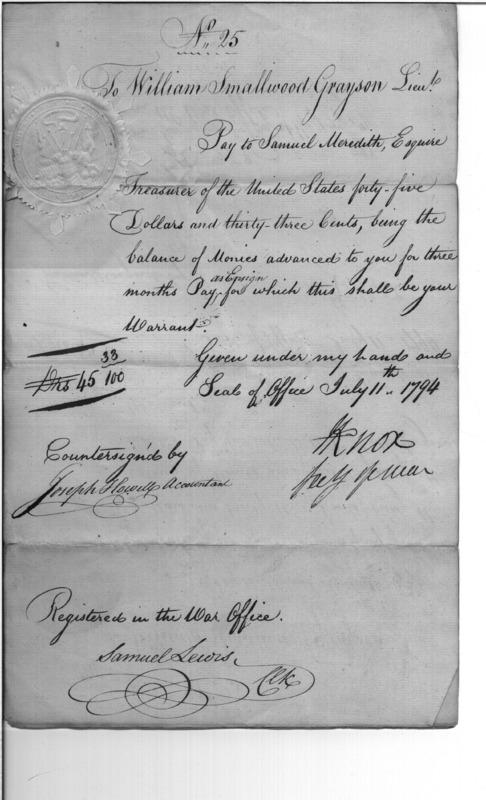 No. 25
To William Smallwood Grayson Lieut.
Pay to Samuel Meredith, Esquire
Treasurer of the United States forty-five
Dollars and thirty-three Cents, being the
balance of Monies advanced to you for three
as Ensign
months Pay, for which this shall be your
Warrant.
Drs 45 33/100
Given under my hand and
Seal of Office July 11th. 1794
HKnox
Secy of war
Countersign'd by
Joseph Howell Accountant
Registered in the War Office.
Samuel Lewis,
Clk